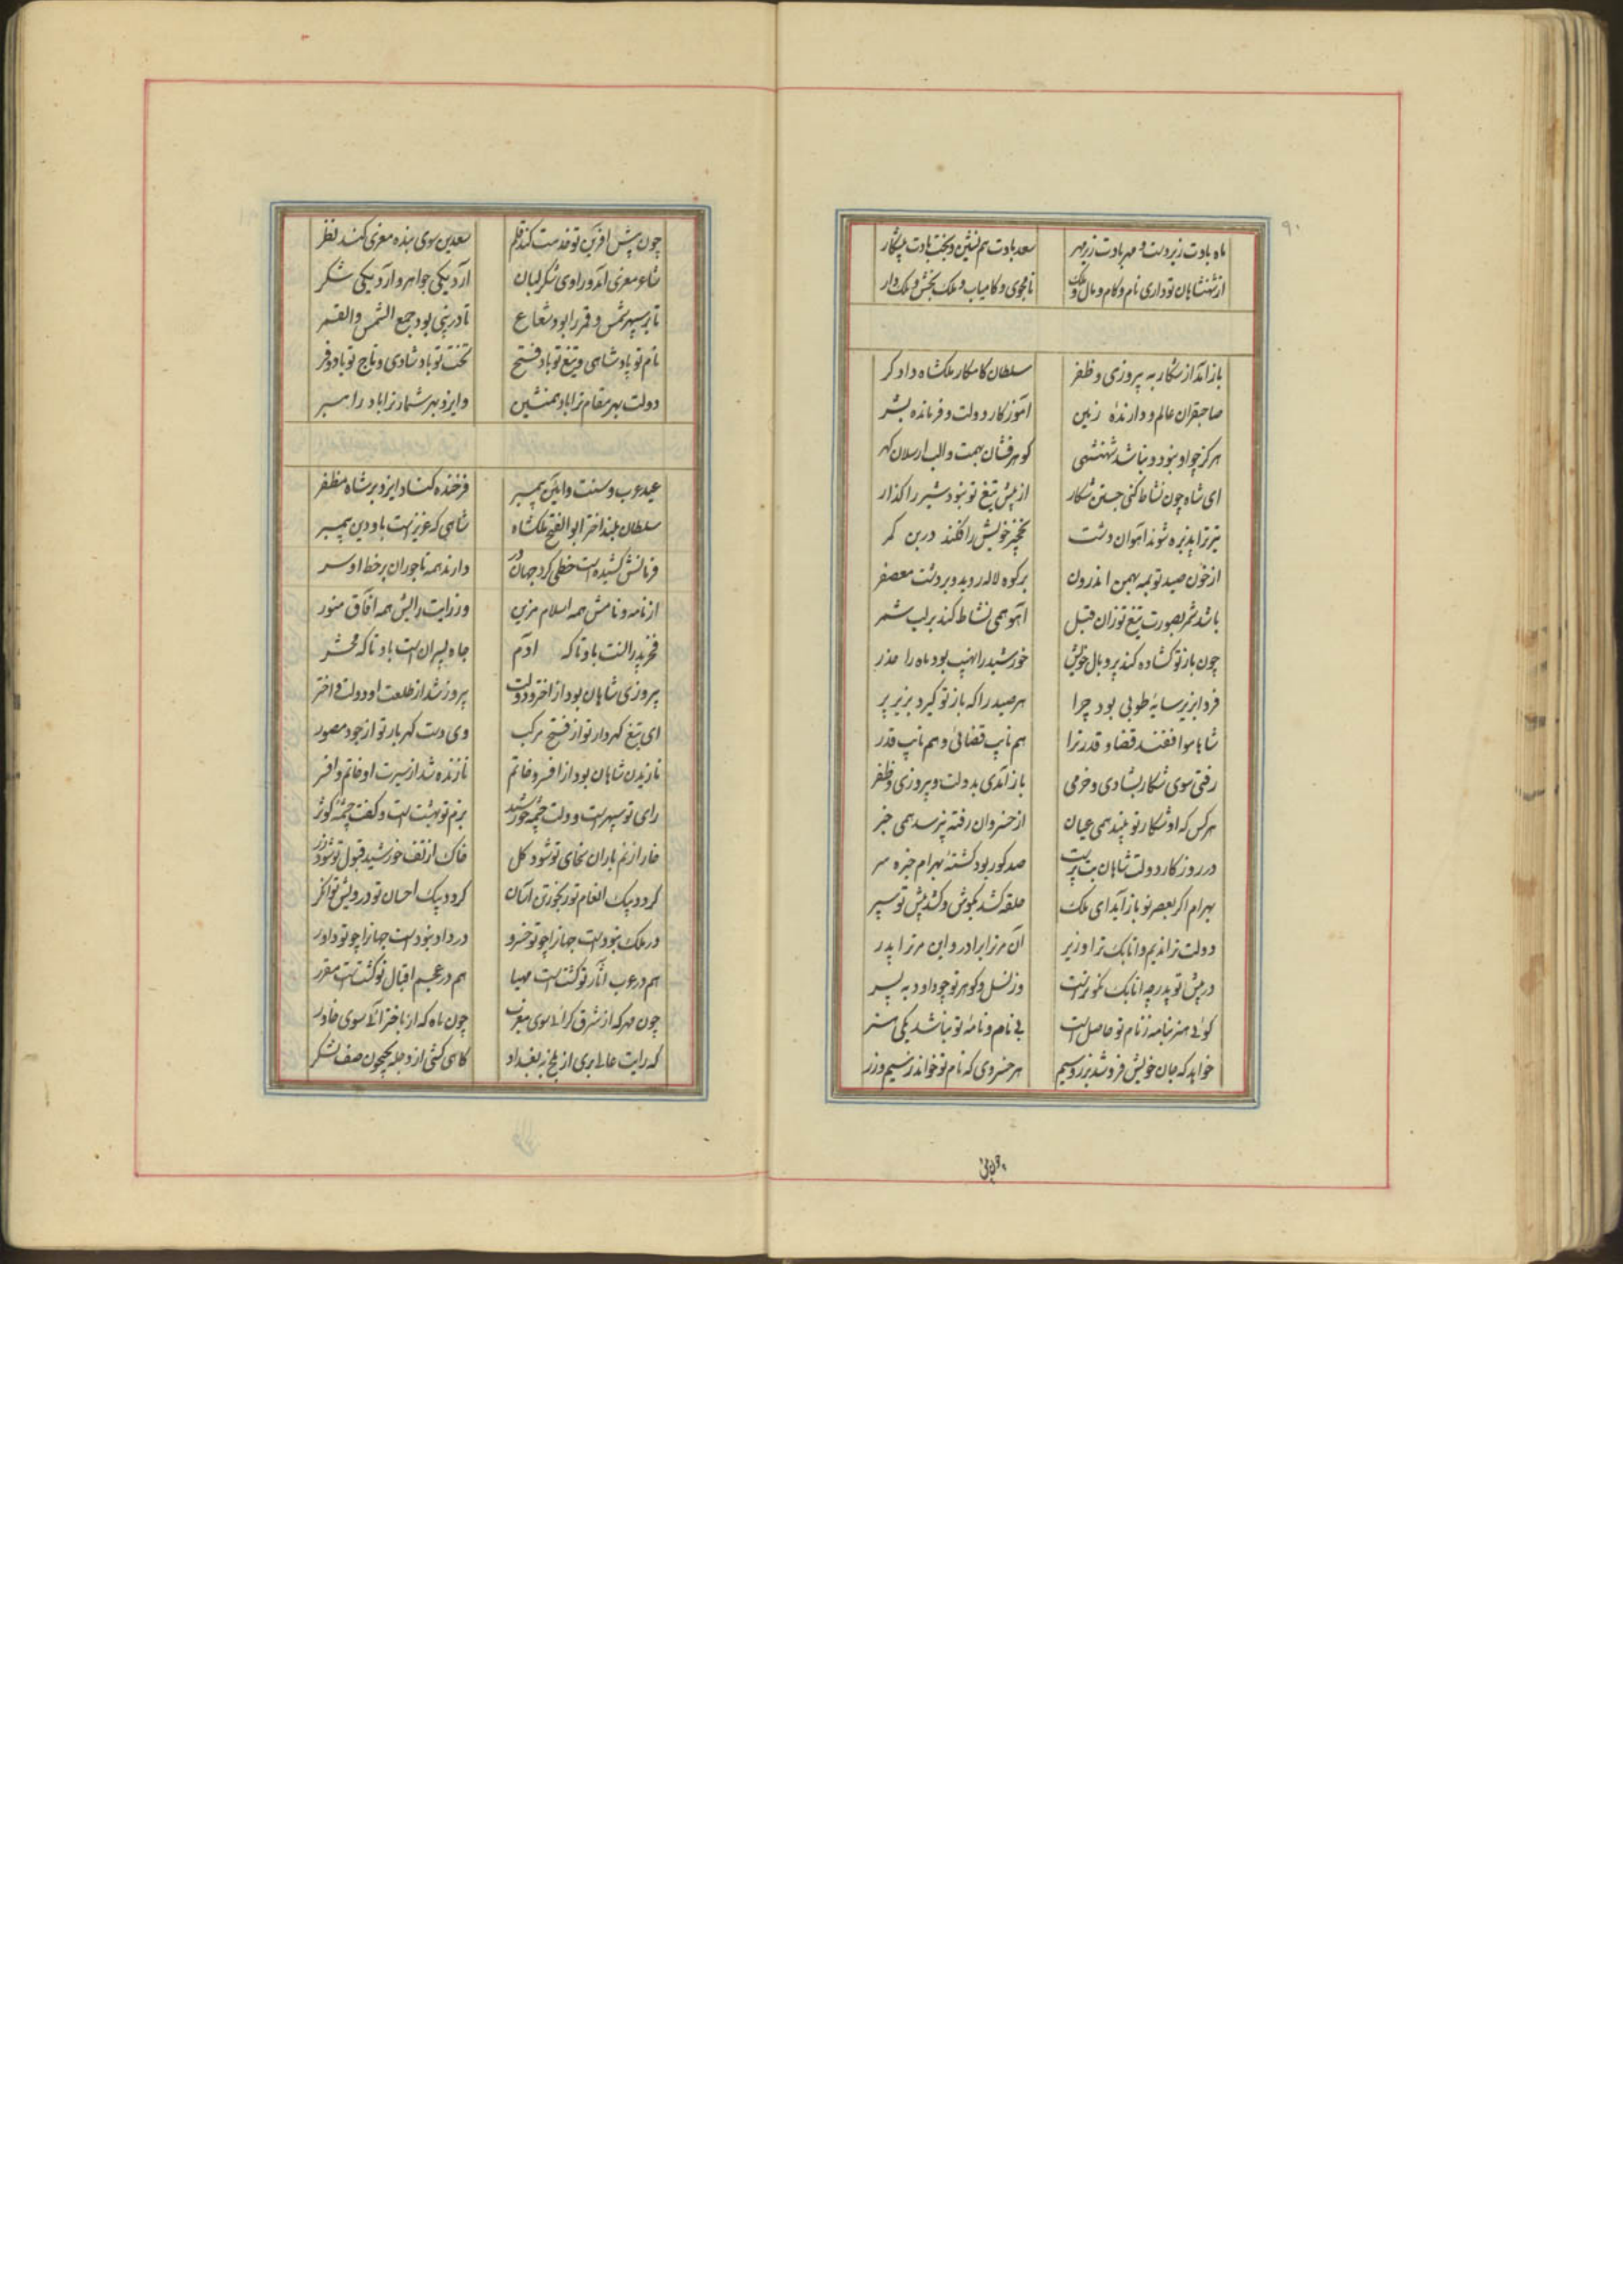 ۹۰
ماه بادت زیردست و مهر بادت زیر مهر سعد بادت همنشین و بخت بادت پیشکار
از شهنشاهان تو داری نام و کام و مال و ملک نامجوی و کامیاب و ملک بخش و ملک دار
باز آمد از شکار به پیروزی و ظفر سلطان کامکار ملکشاه دادگر
صاحبقران عالم و دارندهٔ زمین آموزگار دولت و فرمانده بشر
هرگز چو او نبود و نباشد شهنشهی گوهرفشان بهمت و الب ارسلان گهر
ای شاه چون نشاط کنی جستن شکار از پیش تیغ تو نبود شیر را گذار
تیر ترا پذیره شوند آهوان دشت نخچیر خویش را فکند در بن کمر
از خون صید تو بمه بهمن اندرون بر کوه لاله روید و بر دشت معصفر
باشد شمر بصورت تیغ تو زان قبل آهو همی نشاط کند بر لب شمر
چون باز تو گشاده کند پر و بال خویش خورشید را نهیب بود ماه را حذر
فردا بزیر سایهٔ طوبی بود چرا هر صید را که باز تو گیرد بزیر پر
شاها موافقند قضا و قدر ترا هم نایب قضائی و هم نایب قدر
رفتی سوی شکار بشادی و خرمی باز آمدی بدولت و پیروزی و ظفر
هر کس که او شکار تو بیند همی عیان از خسروان رفته نپرسد همی خبر
در روزگار دولت شاهان بت پرست صد گور بود کشتهٔ بهرام خیره سر
بهرام اگر بعصر تو باز آید ای ملک حلقه کشد بگوش و کشد پیش تو سپر
دولت ترا ندیم و اتابک ترا وزیر آن مر ترا برادر و این مر ترا پدر
در پیش تو پدر چه اتابک نکوترست وز نسل و گوهر تو چو داود به پسر
گوئی هنر بنامه ز نام تو حاصل است بی نام و نامهٔ تو نباشد یکی هنر
خواهد که جان خویش فروشد بزر و سیم هر خسروی که نام تو خواند ز سیم و زر
چون پیش آفرین تو خدمت کند قلم سعدین سوی بنده معزی کند نظر
شاعر معزی آمد و راوی شکرلبان آرد یکی جواهر و آرد یکی شکر
تا بر سپهر شمس و قمر را بود شعاع تا در نبی بود جمع الشمس والقمر
نام تو باد شاهی و تیغ تو باد فتح تخت تو باد شادی و تاج تو باد و فر
دولت بهر مقام ترا باد همنشین وایزد بهر شمار ترا باد راهبر
عید عرب و سنت و آیین پیمبر فرخنده کناد ایزد بر شاه مظفر
سلطان بلند اختر ابوالفتح ملکشاه شاهی که عزیزست باو دین پیمبر
فرمانش کشیده است خطی گرد جهان در دارند همه تاجوران بر خط او سر
از نامه و نامش همه اسلام مزین وز رایت رایش همه آفاق منور
فخر پدر الست باو تا که آدم جاه پسران است باو تا که محشر
پیروزی شاهان بود از اختر و دولت پیروز شد از طلعت او دولت و اختر
ای تیغ گهردار تو از فتح مرکب وی دست گهربار تو از جود مصور
نازیدن شاهان بود از افسر و خاتم نازنده شد از سیرت او خاتم و افسر
رای تو سپهر است و دولت چشمهٔ خورشید بزم تو بهشت است و کفت چشمهٔ کوثر
خار از نم باران سخای تو شود گل خاک از تف خورشید قبول تو شود زر
گردد بیک انعام تو رنجور تن آسان گردد بیک احسان تو درویش توانگر
در ملک نبودست جهانرا چو تو خسرو در داد نبودست جهانرا چو تو داور
هم در عرب آثار تو گشتست مهیا هم در عجم اقبال تو گشتست مقرر
چون مهر که از شرق گرائی سوی مغرب چون ماه که از باختر آئی سوی خاور
گه رایت عالی بری از بلخ به بغداد گاهی کشی از دجله بجیحون صف لشکر